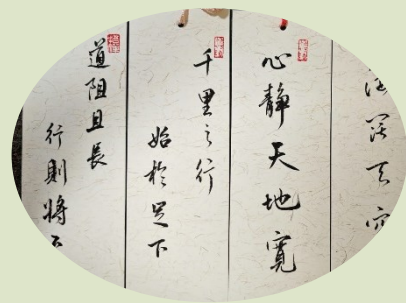 天空
心靜天地寬
千里之行
始於足下
道阻且長
行則將